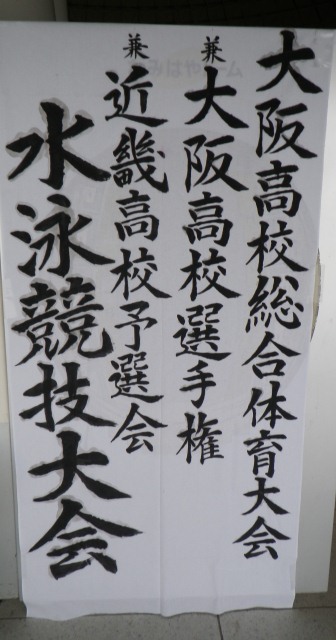 大阪高校総合体育大会
兼大阪高校選手権
兼近畿高校予選会
水泳競技大会